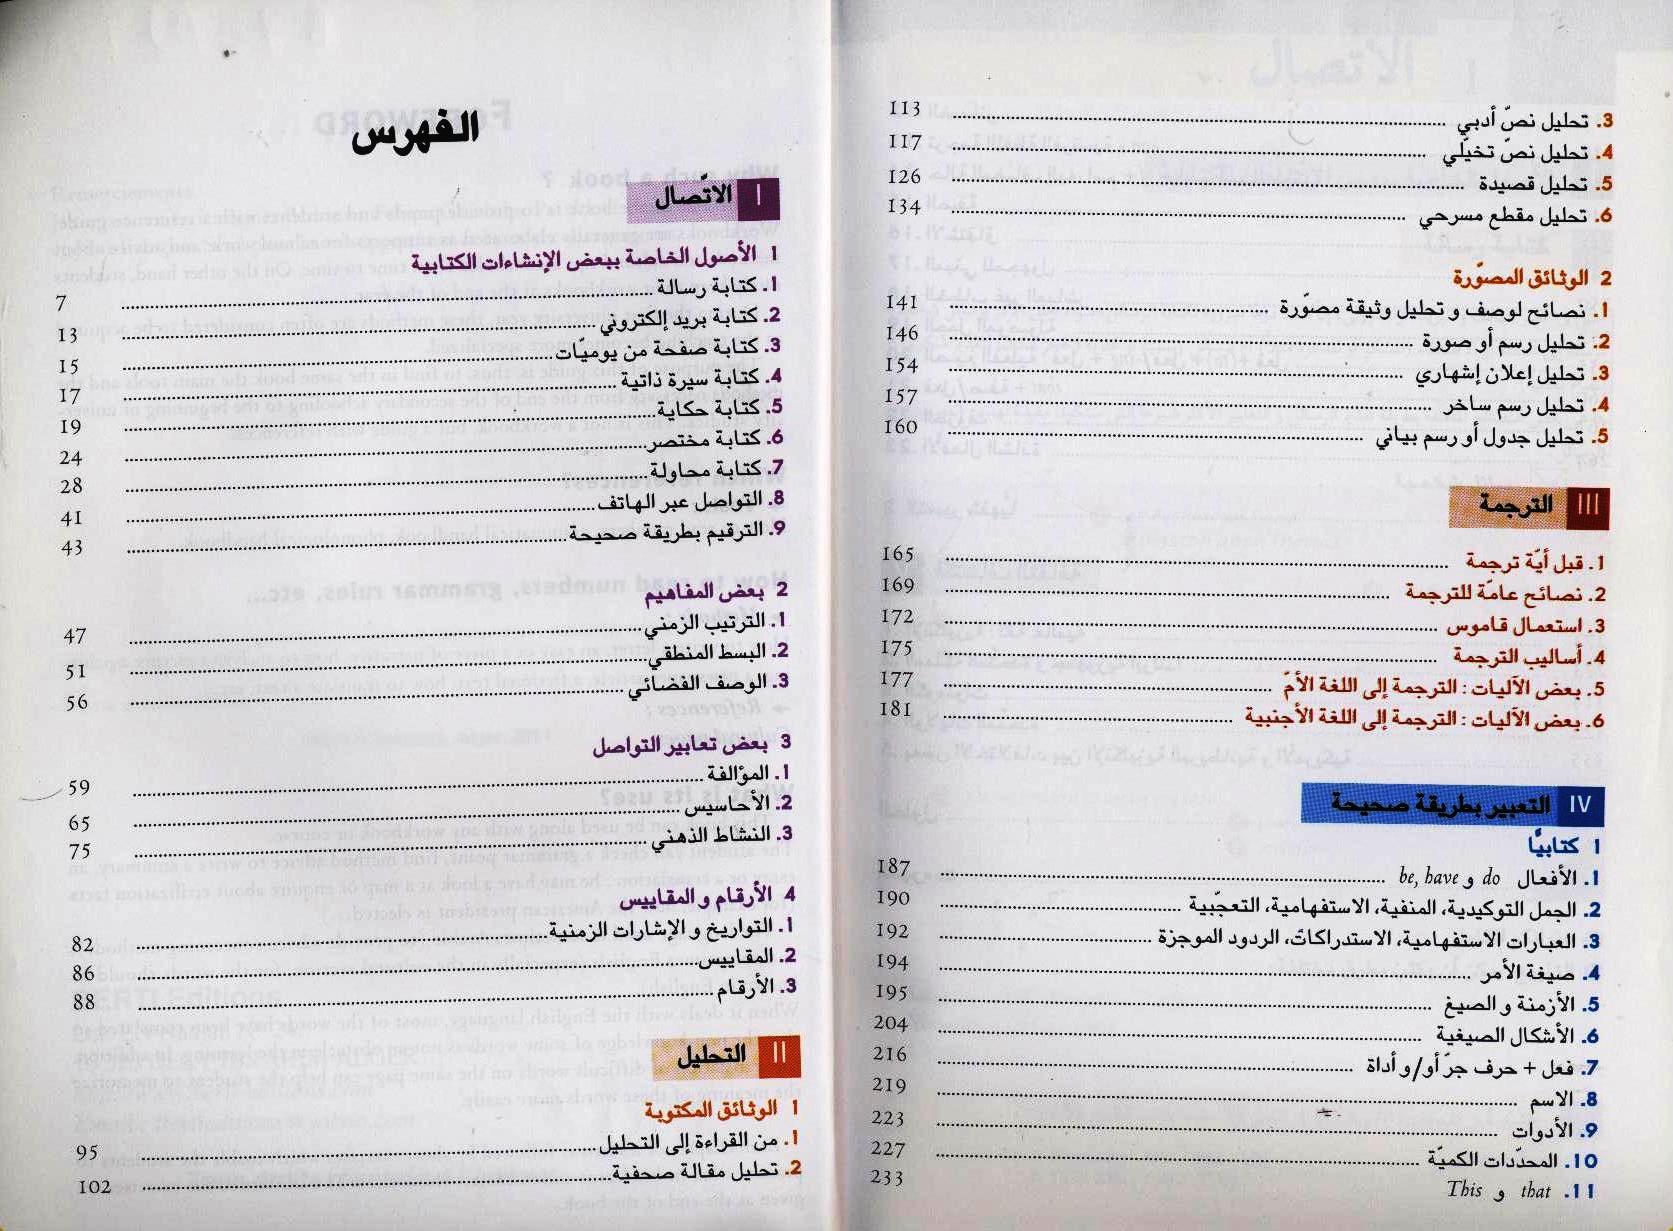 الفهرس
I الاتّصال
1 الأصول الخاصة ببعض الإنشاءات الكتابية
1. كتابة رسالة 7
2. كتابة بريد إلكتروني 13
3. كتابة صفحة من يوميّات 15
4. كتابة سيرة ذاتية 17
5. كتابة حكاية 19
6. كتابة مختصر 24
7. كتابة محاولة 28
8. التواصل عبر الهاتف 41
9. الترقيم بطريقة صحيحة 43
2 بعض المفاهيم
1. الترتيب الزمني 47
2. البسط المنطقي 51
3. الوصف الفضائي 56
3 بعض تعابير التواصل
1. المؤالفة 59
2. الأحاسيس 65
3. النشاط الذهني 75
4 الأرقام و المقاييس
1. التواريخ و الإشارات الزمنية 82
2. المقاييس 86
3. الأرقام 88
II التحليل
1 الوثائق المكتوبة
1. من القراءة إلى التحليل 95
2. تحليل مقالة صحفية 102
3. تحليل نصّ أدبي 113
4. تحليل نصّ تخيّلي 117
5. تحليل قصيدة 126
6. تحليل مقطع مسرحي 134
2 الوثائق المصوّرة
1. نصائح لوصف و تحليل وثيقة مصوّرة 141
2. تحليل رسم أو صورة 146
3. تحليل إعلان إشهاري 154
4. تحليل رسم ساخر 157
5. تحليل جدول أو رسم بياني 160
III الترجمة
1. قبل أيّة ترجمة 165
2. نصائح عامّة للترجمة 169
3. استعمال قاموس 172
4. أساليب الترجمة 175
5. بعض الآليات : الترجمة إلى اللغة الأمّ 177
6. بعض الآليات : الترجمة إلى اللغة الأجنبية 181
IV التعبير بطريقة صحيحة
1 كتابيًّا
1. الأفعال do و be, have 187
2. الجمل التوكيدية، المنفية، الاستفهامية، التعجّبية 190
3. العبارات الاستفهامية، الاستدراكات، الردود الموجزة 192
4. صيغة الأمر 194
5. الأزمنة و الصيغ 195
6. الأشكال الصيغية 204
7. فعل + حرف جرّ أو/و أداة 216
8. الاسم 219
9. الأدوات 223
10. المحدّدات الكميّة 227
11. that و This 233